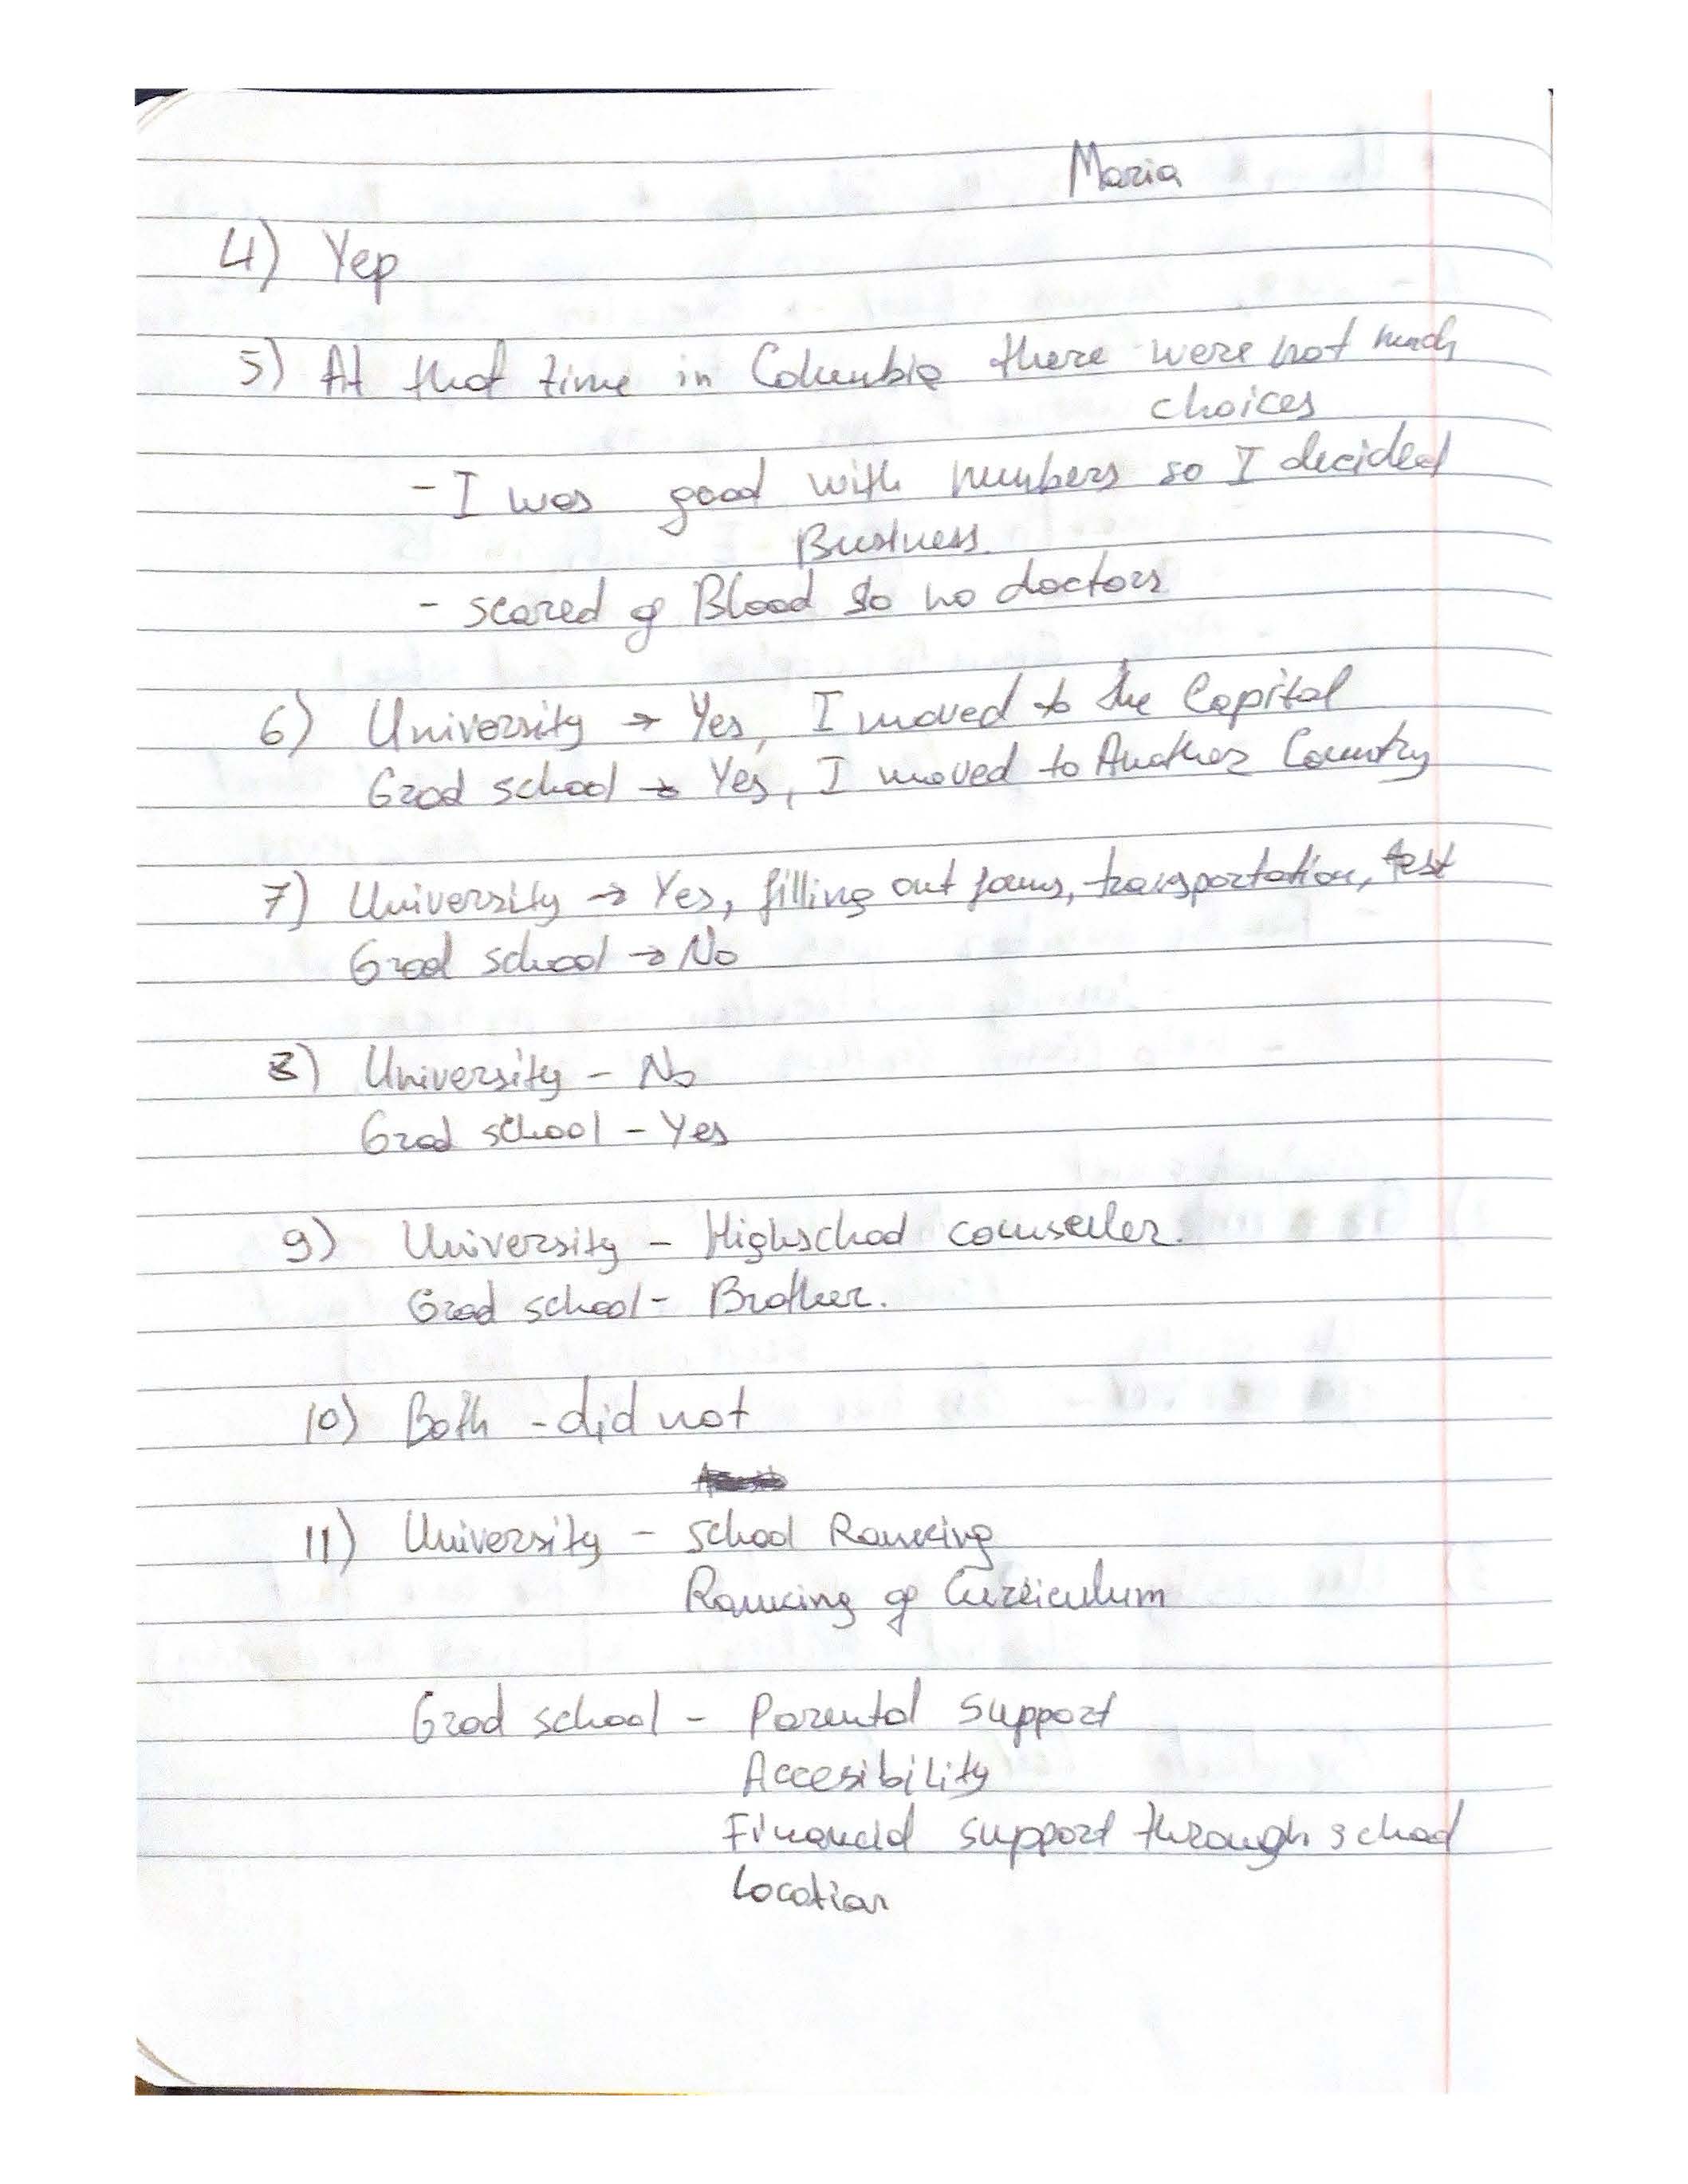 Maria
4) Yep
5) At that time in Columbia there were not much
choices
- I was good with numbers so I decided
Business.
- scared of Blood so no doctors
6) University → Yes, I moved to the Capital
Grad school → Yes, I moved to Another Country
7) University → Yes, filling out forms, transportation, test
Grad school → No
8) University - No
Grad school - Yes
9) University - Highschool counseller.
Grad school - Brother.
10) Both - did not
11) University - School Ranking
Ranking of Curriculum
Grad school - Parental Support
Accesibility
Financial support through school
Location